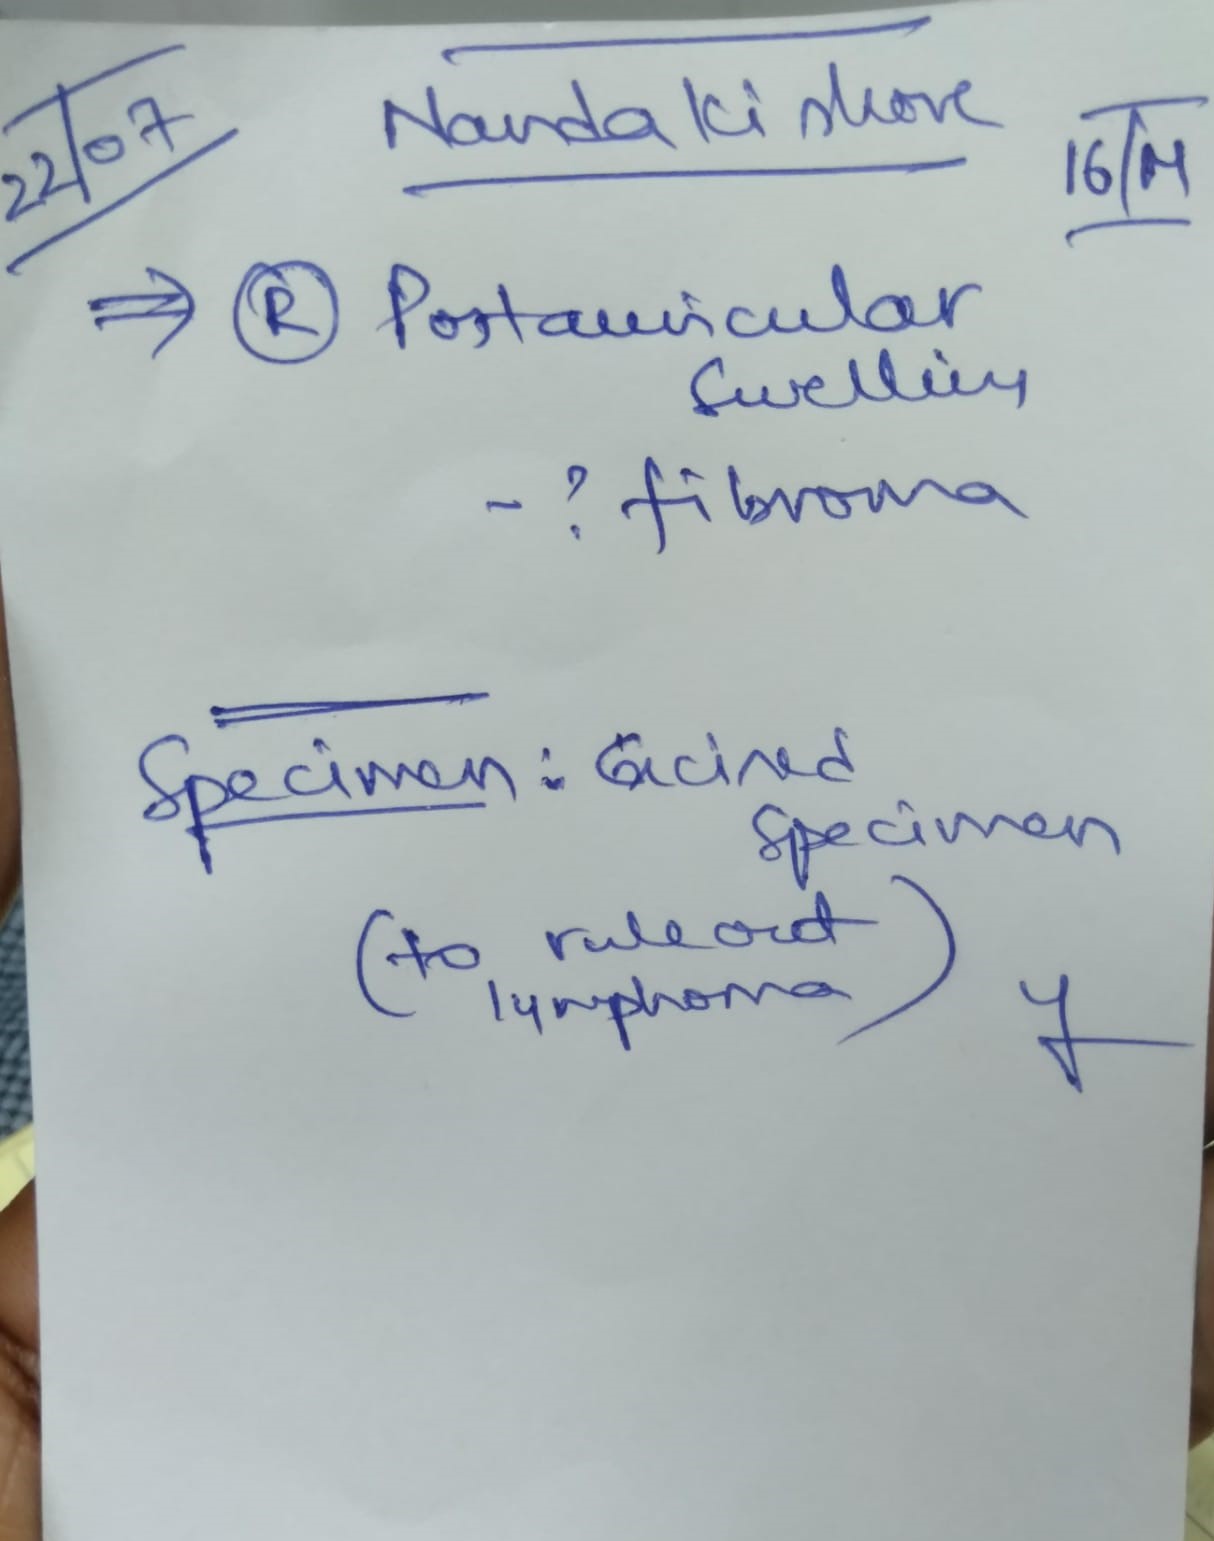 22/07
Nanda Kishore
16/M
⇒ Ⓡ Postauricular
Swelling
- ? fibroma
Specimen: Excised
Specimen
(to rule out
lymphoma)